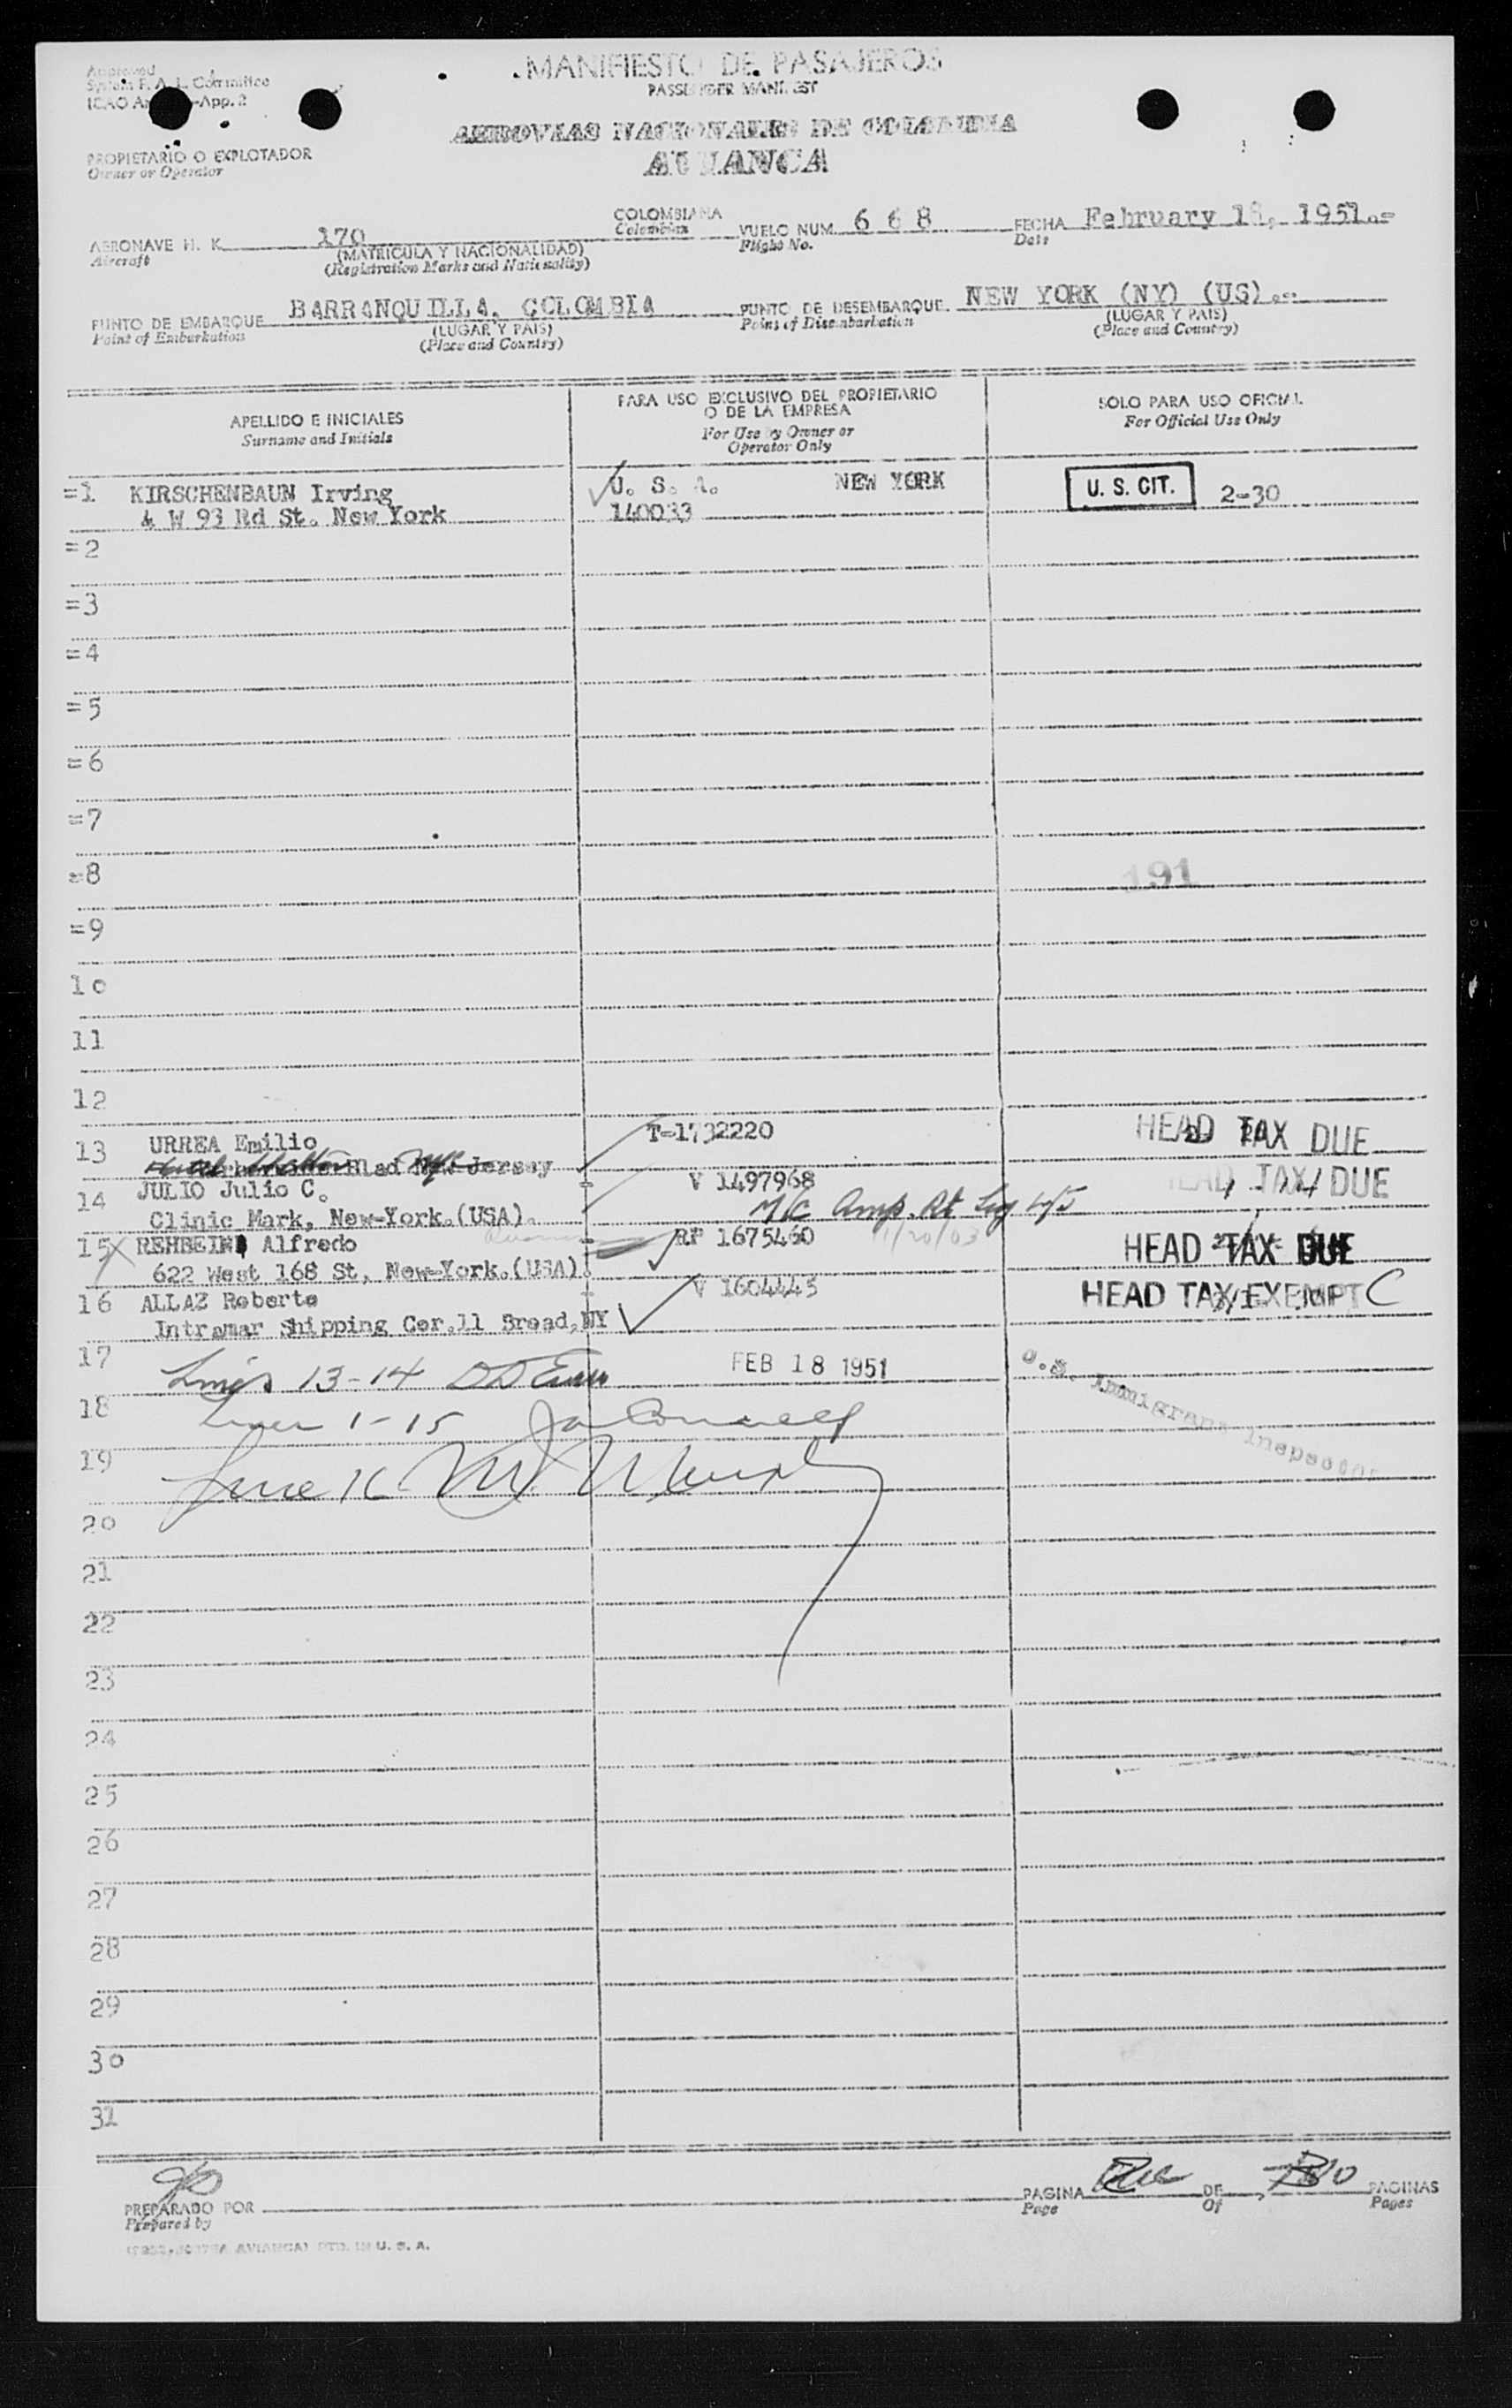 Approved
System F. A. L. Committee
ICAO -App. 2
MANIFIESTO DE PASAJEROS
PASSENGER MANIFEST
AEROVIAS NACIONALES DE COLOMBIA
AVIANCA
PROPIETARIO O EXPLOTADOR
Owner or Operator
AERONAVE H. K. 170 COLOMBIANA VUELO NUM. 6 6 8 FECHA February 18, 1951.-
Aircraft (MATRICULA Y NACIONALIDAD) Colombian Flight No. Date
(Registration Marks and Nationality)
PUNTO DE EMBARQUE BARRANQUILLA, COLOMBIA PUNTO DE DESEMBARQUE NEW YORK (NY) (US).-
Point of Embarkation (LUGAR Y PAIS) Point of Disembarkation (LUGAR Y PAIS)
(Place and Country) (Place and Country)
APELLIDO E INICIALES PARA USO EXCLUSIVO DEL PROPIETARIO SOLO PARA USO OFICIAL
Surname and Initials O DE LA EMPRESA For Official Use Only
For Use by Owner or
Operator Only
=1 KIRSCHENBAUN Irving U. S. A. NEW YORK U. S. CIT. 2-30
4 W 93 Rd St. New York 140033
=2
=3
=4
=5
=6
=7
=8 191
=9
10
11
12
13 URREA Emilio T-1732220 HEAD TAX DUE
Jersey
14 JULIO Julio C. V 1497968 HEAD TAX DUE
Clinic Mark, New-York.(USA). Amp. Rt Leg
15 REHBEIN Alfredo RP 1675460 HEAD TAX DUE
622 West 168 St, New-York.(USA).
16 ALLAZ Roberto V 1604443 HEAD TAX EXEMPT C
Intramar Shipping Cor.11 Broad,NY
17 Lines 13-14 FEB 18 1951 U.S. Immigrant Inspector
18 Lines 1-15
19 Line 16
20
21
22
23
24
25
26
27
28
29
30
31
PREPARADO POR PAGINA DE PAGINAS
Prepared by Page Of Pages
AVIANCA) PTD. IN U. S. A.